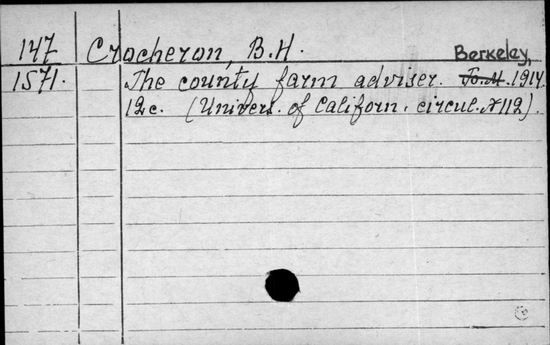 147 Crocheron, B.H.
Berkeley,
1571. The county farm adviser. 1914.
12c. (Univers. of Californ. circul. N 112).